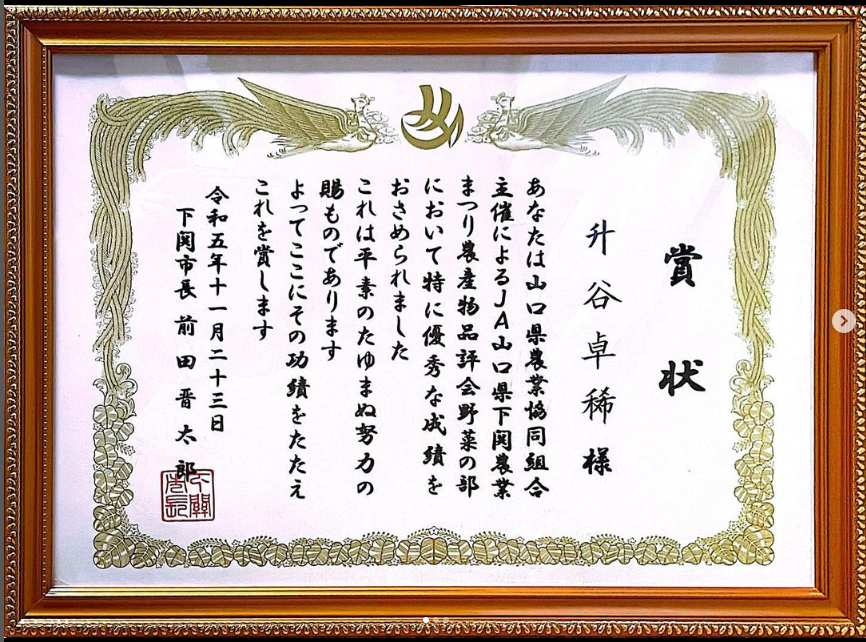 賞状
升谷卓稀様
あなたは山口県農業協同組合
主催によるJA山口県下関農業
まつり農産物品評会野菜の部
において特に優秀な成績を
おさめられました
これは平素のたゆまぬ努力の
賜ものであります
よってここにその功績をたたえ
これを賞します
令和五年十一月二十三日
下関市長 前田晋太郎
下關市長